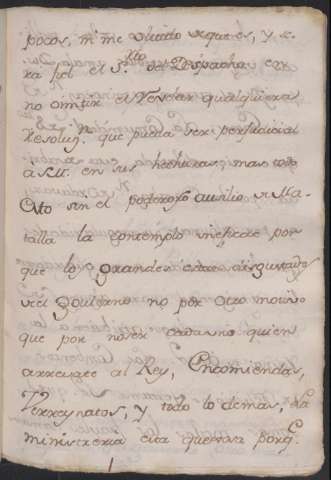 pocos, ni me olvido de que es, y se-
rá fiel el S.rio del Despacho en
no omitir el Vendar qualquiera
Resoluz.n que pueda ser perjudicial
a S.M. en sus hechuras; mas todo
esto sin el poderoso auxilio de Ma-
talla la contemplo ineficaz por
que los grandes estan disgustados
del Govierno no por otro motivo
que por no ser cada uno quien
arrebate al Rey, Encomiendas,
Verreynatos, y todo lo demas, La
ministreria esta quexosa porq.e